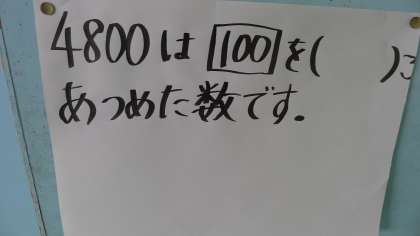 4800は 100を( )こ
あつめた数です。